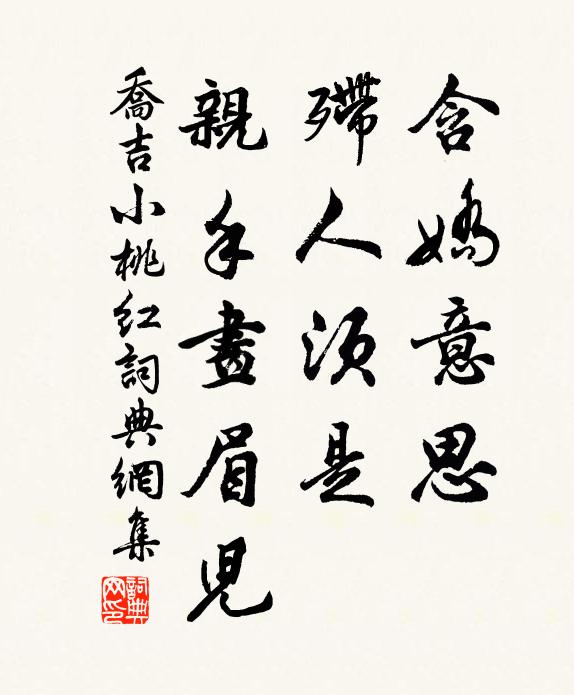 含嬌意思
殢人須是
親手畫眉兒
喬吉小桃紅詞典網集
詞典
网印